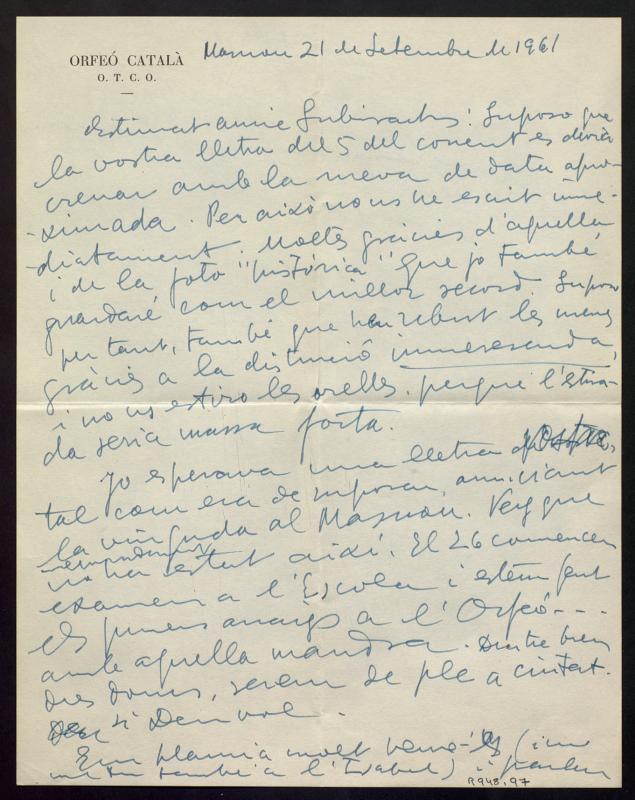 ORFEÓ CATALÀ
O. T. C. O.
Masnou 21 de Setembre de 1961
Estimat amic Subirachs: Suposo que
la vostra lletra del 5 del corrent es devia
creuar amb la meva de data apro-
-ximada. Per això no us he escrit imme-
-diatament. Moltes gràcies d'aquella
i de la foto "històrica" que jo també
guardaré com el millor record. Suposo
per tant, també que heu rebut les meves
gràcies a la distinció immerescuda,
i no us estiro les orelles, perquè l'estira-
da seria massa forta.
Jo esperava una lletra vostra,
tal com era de suposar, anunciant
la vinguda al Masnou. Veig que
no ha estat així. El 26 comencen
examens a l'Escola i estem fent
els primers assaigs a l'Orfeó---
amb aquella mandra. Dintre breus
dies doncs, serem de ple a ciutat.
si Deu vol.
Em plauria molt veure-us (i
també a l'Isabel) i parlar
R 948, 97